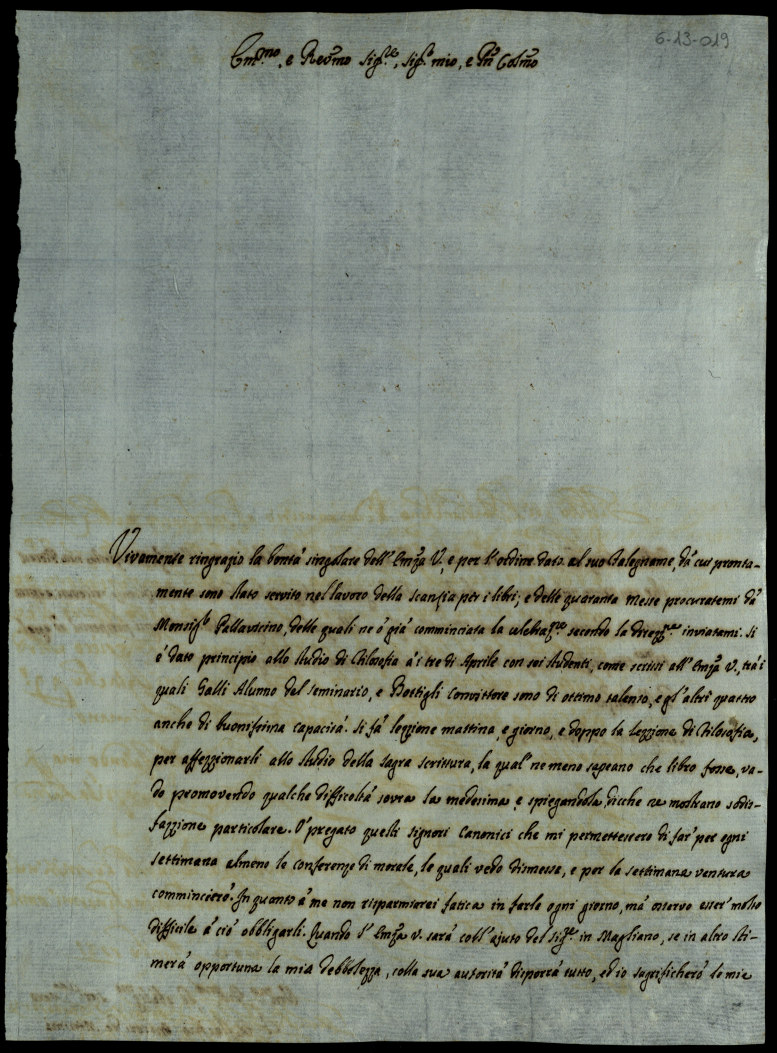 6-13-019
Em.mo, e Reümo Sig.re, Sig.r mio, e Prñ Colmo
Vivamente ringrazio la bontà singolare dell' Emza V., e per l'ordine dato al suo Falegname, da cui pronta-
mente sono stato servito nel lavoro della scanzia per i libri; e delle quaranta Messe procuratemi da
Monsig.r Pallavicino, delle quali ne ó già comminciata la celebraz.ne secondo la direzz.ne inviatami. Si
é dato principio allo studio di Filosofia a i tre di Aprile con sei studenti, come scrissi all' Emza V., tra i
quali Galli Alunno del seminario, e Bottigli Convittore sono di ottimo talento, e gl'altri quattro
anche di buonissima capacità. Si fà lezzione mattina, e giorno, e doppo la Lezzione di Filosofia,
per affezzionarli allo studio della sagra scrittura, la qual' ne meno sapeano che libro fosse, va-
do promovendo qualche difficoltà sovra la medesima, e spiegandola, dicche ne mostrano sodis-
fazzione particolare. O' pregato questi signori Canonici che mi permettessero di far' per ogni
settimana almeno le conferenze di morale, le quali vedo dismesse, e per la settimana ventura
comminciero'. In quanto a' me non risparmierei fatica in farle ogni giorno, ma' osservo esser' molto
difficile a' ció obbligarli. Quando l' Emza V. sarà coll' ajuto del Sig.re in Magliano, se in altro sti-
merà opportuna la mia debbolezza, colla sua autorità disporrà tutto, ed io sagrificherò le mie